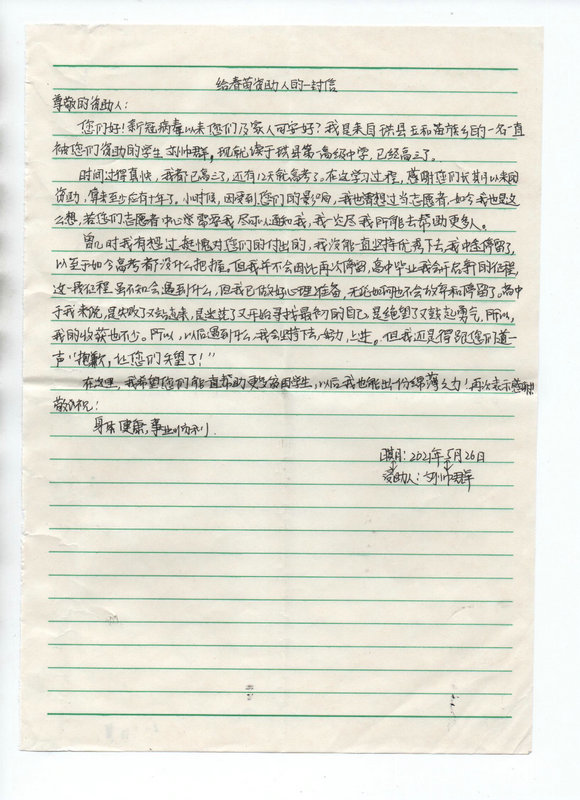 给春苗资助人的一封信
尊敬的资助人：
您们好！新冠病毒以来您们及家人可安好？我是来自珙县玉和苗族乡的一名一直
被您们资助的学生刘帅群，现就读于珙县第一高级中学，已经高三了。
时间过得真快，我都已高三，还有12天就高考了。在这学习过程，感谢您们长期以来的
资助，算来至少应有十年了。小时候，因受到您们的影响，我也曾想过当志愿者，如今我也是这
么想，若您们志愿者中心需要我，尽可以通知我，我一定尽我所能去帮助更多人。
曾几时我有想过挺愧对您们的付出的，我没能一直坚持优秀下去，我中途停留了，
以至于如今高考都没什么把握。但我并不会因此再次停留，高中毕业我会开启新的征程，
这一段征程，虽不知会遇到什么，但我已做好心理准备，无论如何也不会放弃和停留了。高中
于我来说，是失败了又站起来，是迷茫了又再寻找最初的自己，是绝望了又鼓起勇气，所以，
我的收获也不少。所以，以后遇到什么，我会坚持下去，努力，上进。但我还是得跟您们道一
声“抱歉，让您们失望了！”
在这里，我希望您们能一直帮助更多贫困学生，以后我也能出一份绵薄之力！再次表示感谢！
敬祝：
身体健康，事业顺利。
日期：2021年5月26日
受助人：刘帅群